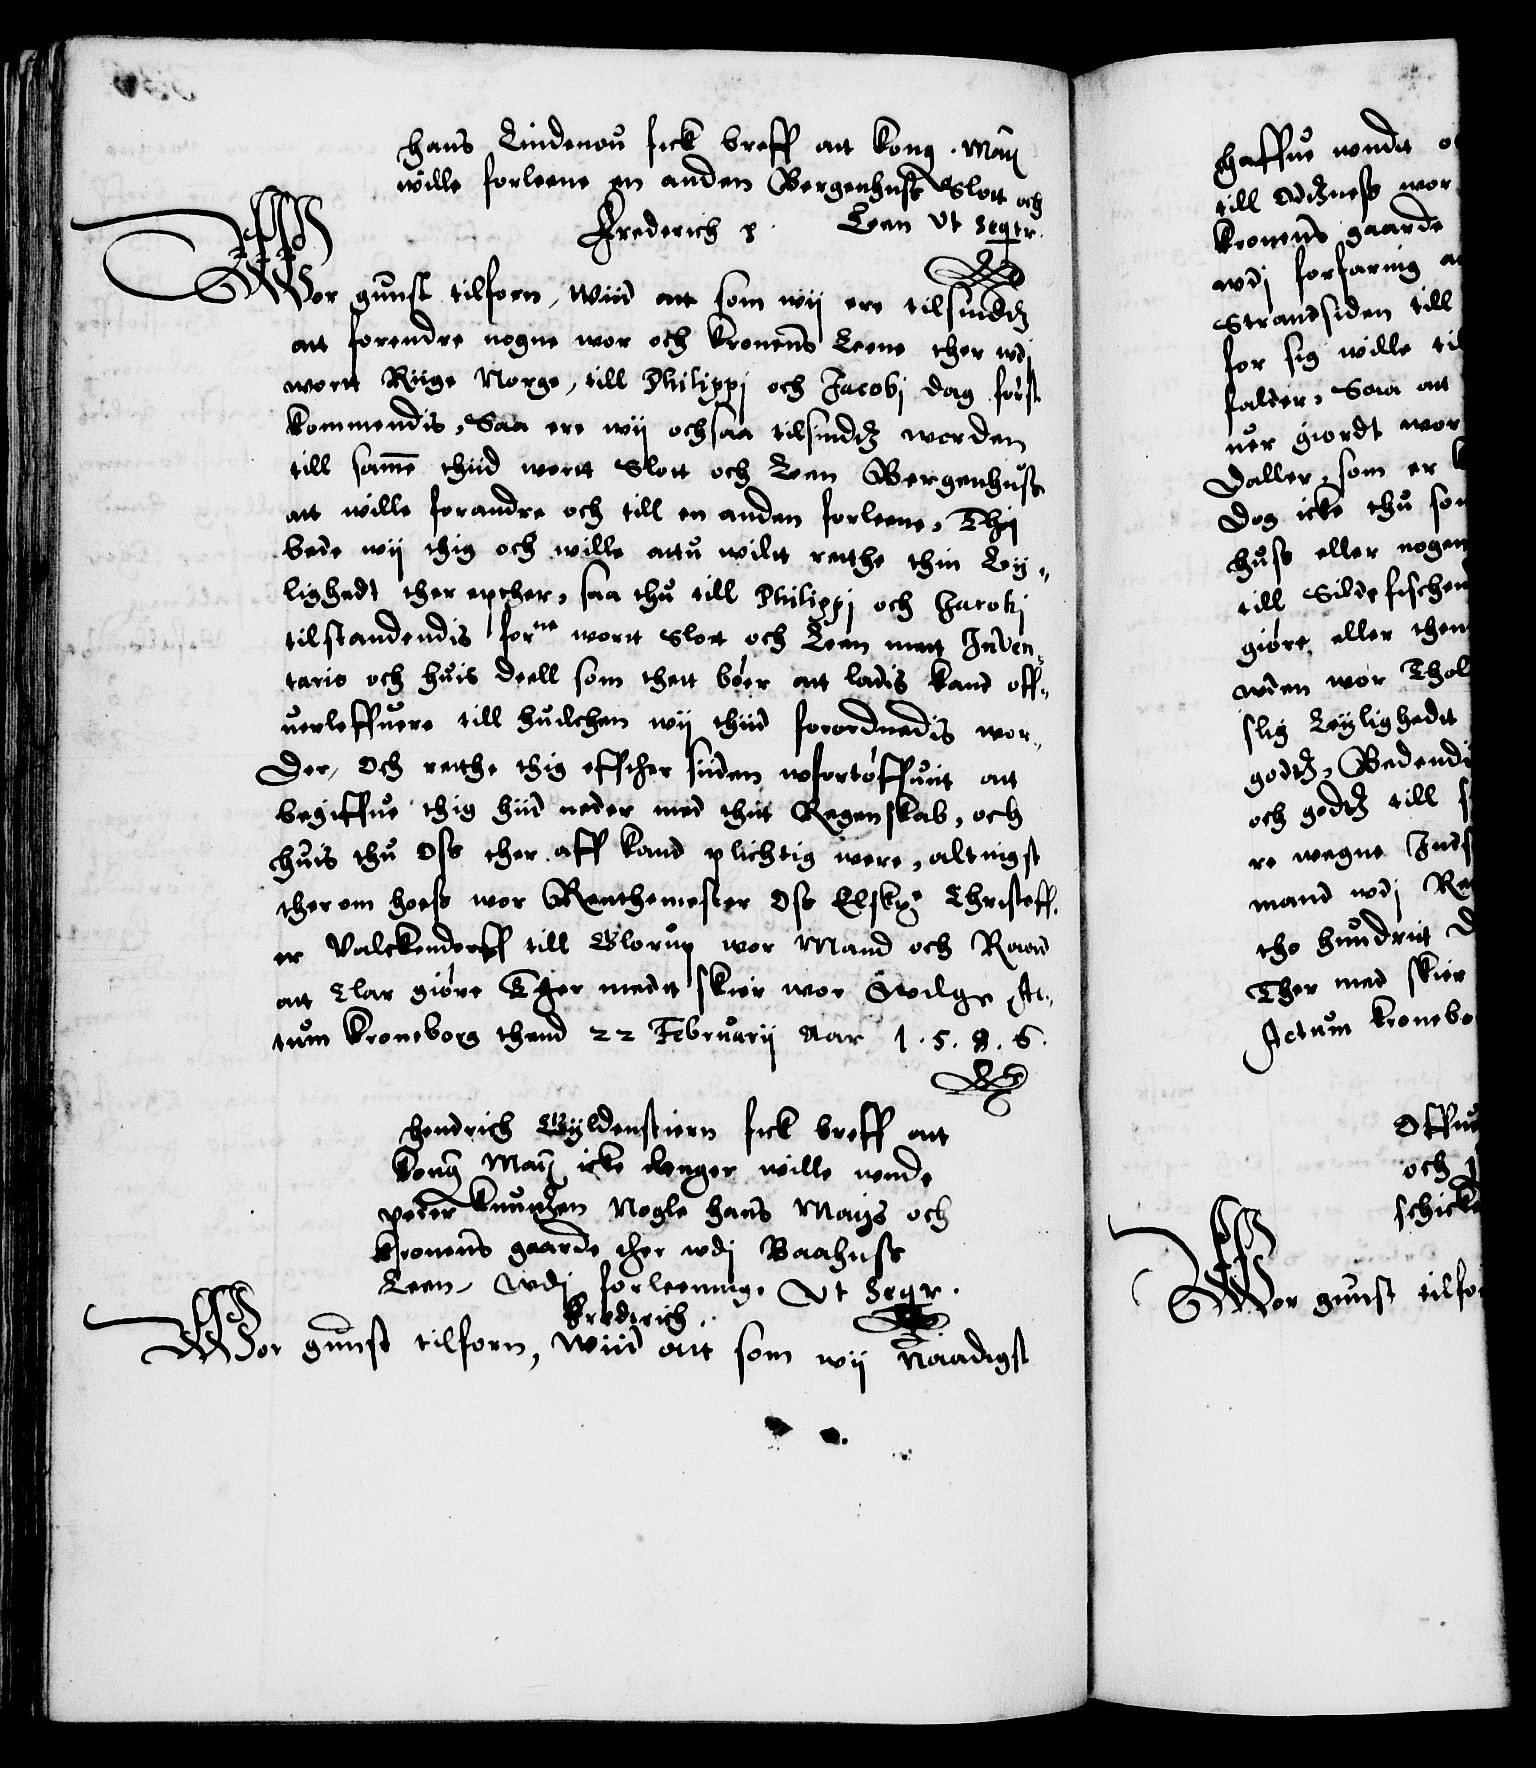 Hans Lindenou fick breff att kong. Maij
wille forleene en anden Bergenhuss Slott och
Frederich p. Leen ut seqtr.
Wor gunst tilforn, Wiid att som wij ere tilsindz
att forendre nogne wor och kronens Leene ther wdj
wortt Riige Norge, till Philippj och Jacobj dag først
kommendis, Saa ere wij ochsaa tilsindz worden
till same thiid wortt Slott och Leen Bergenhuss
att wille forandre och till en anden forleene, Thij
bede wij thig och wille attu wiltt retthe thin Ley,,
lighedt ther epther, saa thu till Philippj och Jacobj
tilstandendis forne wortt Slott och Leen mett Inven,,
tario och huis deell som thett bøer att ladis kand off,,
uerleffuere till huilchen wij thiid forordnedis wor,,
der, Och retthe thig effther siiden wfortøffuitt att
begiffue thig hiid neder med thitt Regenskab, och
huis thu Oss ther aff kand plichtig were, altingist
ther om hoess wor Renthemester Oss Elske Christoff,,
er Valckendorff till Glorup wor Mand och Raad
att Clar giøre Ther medtt skier wor Willge Ac,,
tum Kroneborg thend 22 Februarij Aar 1.5.8.6.
Hendrich Gyldenstiern fick breff att
Kong Maij icke lenger wille unde
peder knudzen Nogle hans Mays och
Kronens gaarde ther wdj Baahuss
Leen, wdj forleening. Ut Seqr.
Frederich.
Wor gunst tilforn, Wiid att som wij Naadigst
haffue undtt
till Oddzness wor
Kronens gaarde
wdj forfaring
Strandsiden till
for sig wille
falder, Saa att
uer giordt wor
Daller, som er
Dog icke thu
huss eller nogen
till Silde fischen
giøre, eller then
uden wor
slig Leylighedtt
godtz, Bedendis
och godtz till
re wegne
mand wdj
tho hundrit
Ther med skier
Actum Kronebo
Offue
och
schicke
Wor gunst tilfo